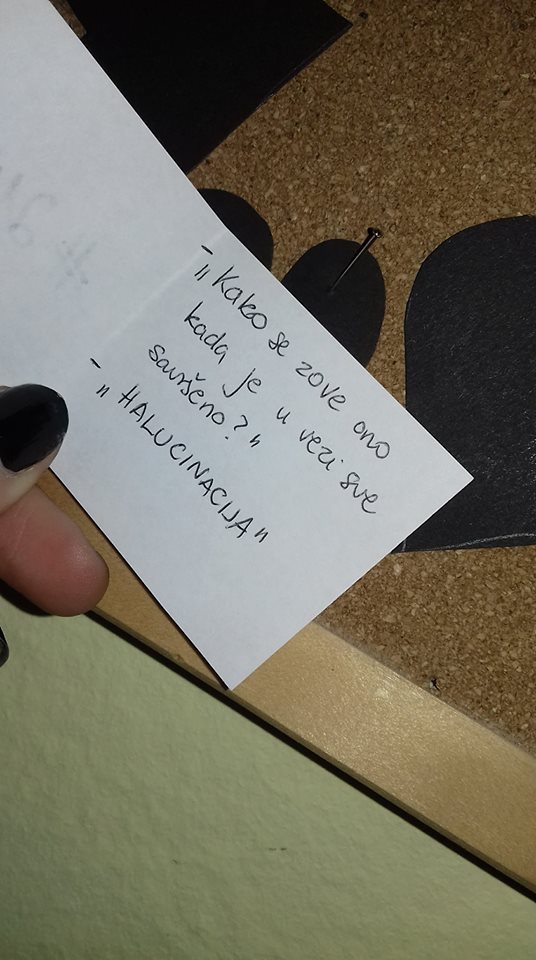 - „Kako se zove ono
kada je u vezi sve
savršeno?"
- „HALUCINACIJA"